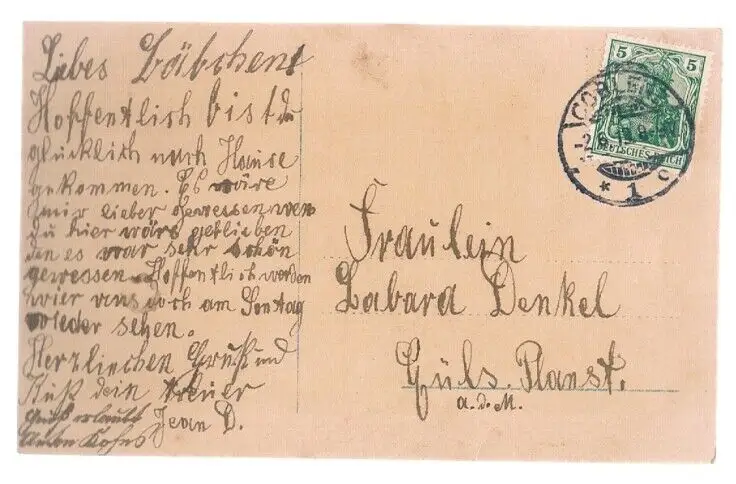 Liebes Bäbchen!
Hoffentlich bist du
glücklich nach Hause
gekommen. Es wäre
mir lieber gewessen wen
du hier wärs geblieben
den es war sehr schön
gewessen. Hoffentlich werden
wier uns doch am Sontag
wieder sehen.
Herzlinchen Gruß und
Kuß dein treuer
Jean D.
Gruß erlaubt
Anton Kohns
5 5
DEUTSCHES REICH
COBLENZ
* 1 c
Fräulein
Babara Denkel
Güls. Planst.
a.d.M.